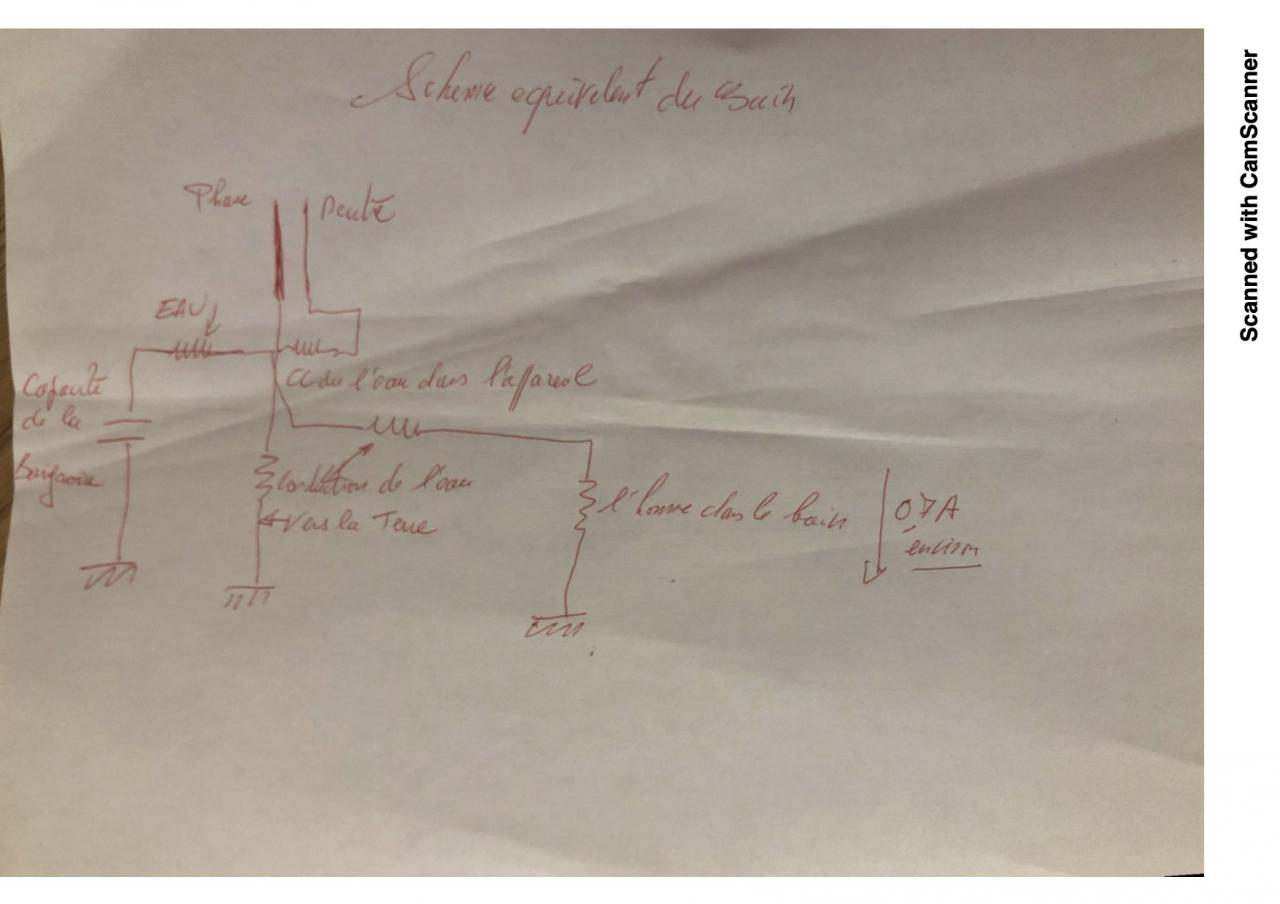 Schema equivalent du Bain
Phase
Neutre
EAU
CC du l'eau dans l'appareil
Capacité
de la
Baignoire
Conduction de l'eau
vers la Terre
l'homme dans le bain
0,7A
environ
Scanned with CamScanner